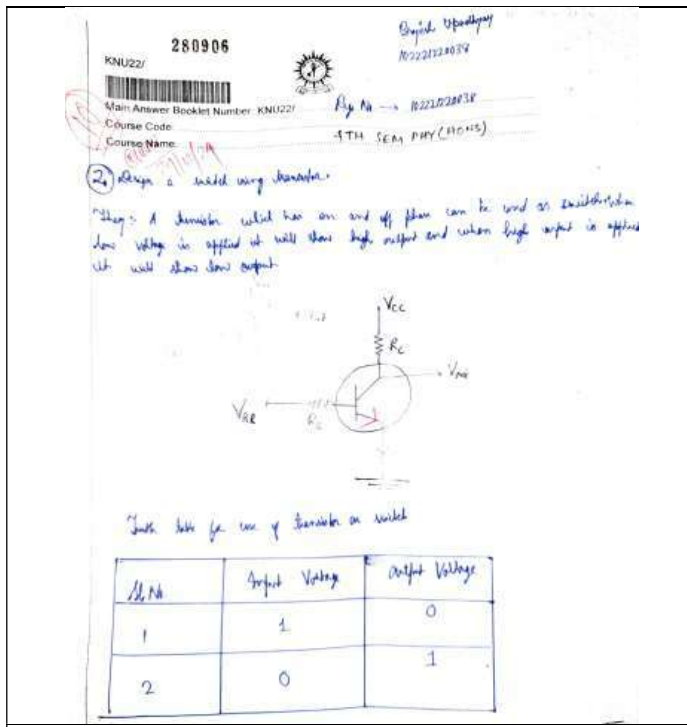 Brajesh Upadhyay
280906
102221220038
KNU22/
Main Answer Booklet Number: KNU22/
Reg No → 102221220038
Course Code
4TH SEM PHY (HONS)
Course Name
2. Design a switch using transistor.
Theory: A transistor which has on and off phase can be used as switch. when
low voltage is applied it will show high output and when high output is applied
it will show low output
VCC
RC
Truth table for use of transistor as switch
Sl. No
Input Voltage
Output Voltage
1
1
0
2
0
1